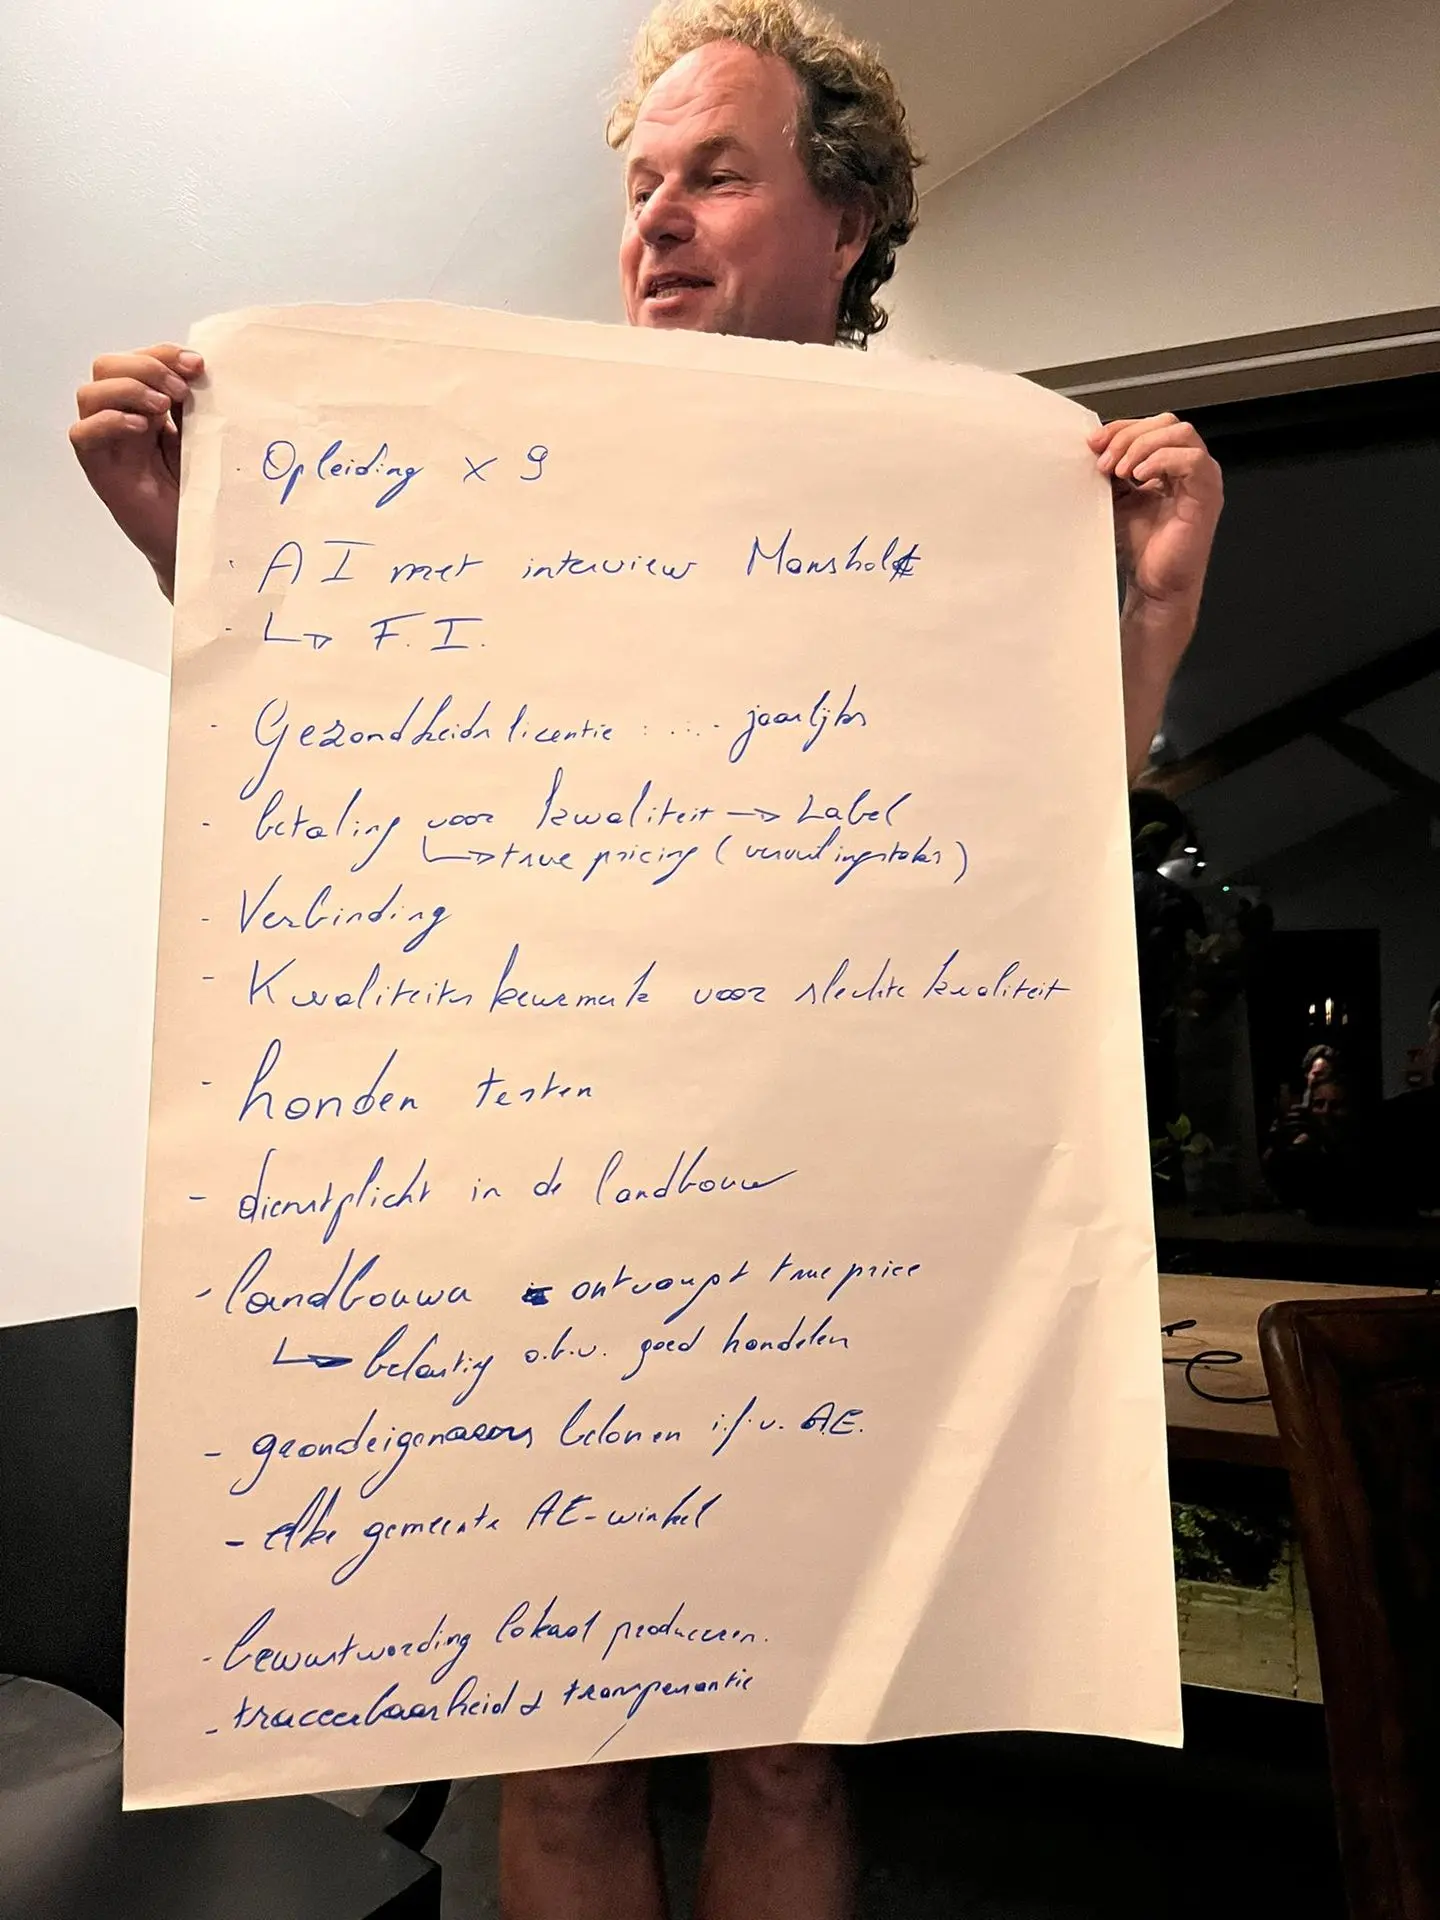 · Opleiding x 9
· AI met interview Mansholt
· ↳ F.I.
- Gezondheidslicentie : .... jaarlijks
- betaling voor kwaliteit → Label
↳ true pricing (vervuilingstaks)
- Verbinding
- Kwaliteitskeurmerk voor slechte kwaliteit
- honden testen
- dienstplicht in de landbouw
- landbouwer ontvangt true price
↳ belasting o.b.v. goed handelen
- grondeigenaars belonen i.f.v. AE.
- elke gemeente AE-winkel
- bewustwording lokaal produceren.
- traceerbaarheid & transparantie